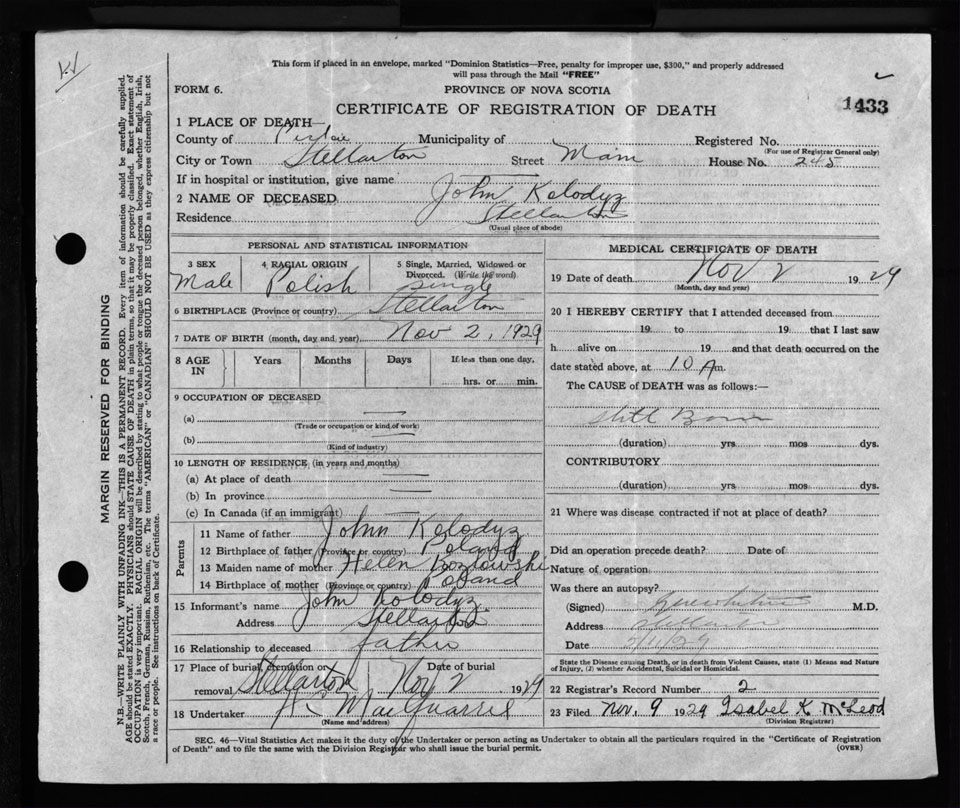 This form if placed in an envelope, marked "Dominion Statistics—Free, penalty for improper use, $300," and properly addressed
will pass through the Mail "FREE"
FORM 6.
PROVINCE OF NOVA SCOTIA
1433
CERTIFICATE OF REGISTRATION OF DEATH
1 PLACE OF DEATH—
County of Pictou Municipality of Registered No.
(For use of Registrar General only)
City or Town Stellarton Street Main House No. 245
If in hospital or institution, give name
2 NAME OF DECEASED John Kolodyz
Residence Stellarton
(Usual place of abode)
PERSONAL AND STATISTICAL INFORMATION
3 SEX 4 RACIAL ORIGIN 5 Single, Married, Widowed or Divorced. (Write the word)
Male Polish single
6 BIRTHPLACE (Province or country) Stellarton
7 DATE OF BIRTH (month, day and year) Nov 2, 1929
8 AGE IN Years Months Days If less than one day, hrs. or min.
9 OCCUPATION OF DECEASED
(a) —
(Trade or occupation or kind of work)
(b) —
(Kind of industry)
10 LENGTH OF RESIDENCE (in years and months)
(a) At place of death —
(b) In province —
(c) In Canada (if an immigrant) —
Parents
11 Name of father John Kolodyz
12 Birthplace of father (Province or country) Poland
13 Maiden name of mother Helen Kozlowski
14 Birthplace of mother (Province or country) Poland
15 Informant's name John Kolodyz
Address Stellarton
16 Relationship to deceased father
17 Place of burial, cremation or removal Stellarton Date of burial Nov 2 1929
18 Undertaker
(Name and address)
MEDICAL CERTIFICATE OF DEATH
19 Date of death Nov 2 1929
(Month, day and year)
20 I HEREBY CERTIFY that I attended deceased from
19 to 19 that I last saw
h alive on 19 and that death occurred on the
date stated above, at 10 A m.
The CAUSE of DEATH was as follows:—
Still Born
(duration) yrs mos dys.
CONTRIBUTORY
(duration) yrs mos dys.
21 Where was disease contracted if not at place of death?
Did an operation precede death? Date of
Nature of operation
Was there an autopsy?
(Signed) M.D.
Address Stellarton
Date 2/11/29
State the Disease causing Death, or in death from Violent Causes, state (1) Means and Nature
of Injury, (2) whether Accidental, Suicidal or Homicidal.
22 Registrar's Record Number 2
23 Filed Nov. 9 1929 Isabel K McLeod
(Division Registrar)
SEC. 46—Vital Statistics Act makes it the duty of the Undertaker or person acting as Undertaker to obtain all the particulars required in the "Certificate of Registration
of Death" and to file the same with the Division Registrar who shall issue the burial permit.
(OVER)
MARGIN RESERVED FOR BINDING
N.B.—WRITE PLAINLY WITH UNFADING INK—THIS IS A PERMANENT RECORD. Every item of information should be carefully supplied.
AGE should be stated EXACTLY. PHYSICIANS should STATE CAUSE OF DEATH in plain terms, so that it may be properly classified. Exact statement of
OCCUPATION is very important. RACIAL ORIGIN will be described by stating to what people or tongue the deceased person belonged, whether English, Irish,
Scotch, French, German, Russian, Ruthenian, etc. The terms "AMERICAN" or "CANADIAN" SHOULD NOT BE USED as they express citizenship but not
a race or people. See instructions on back of Certificate.